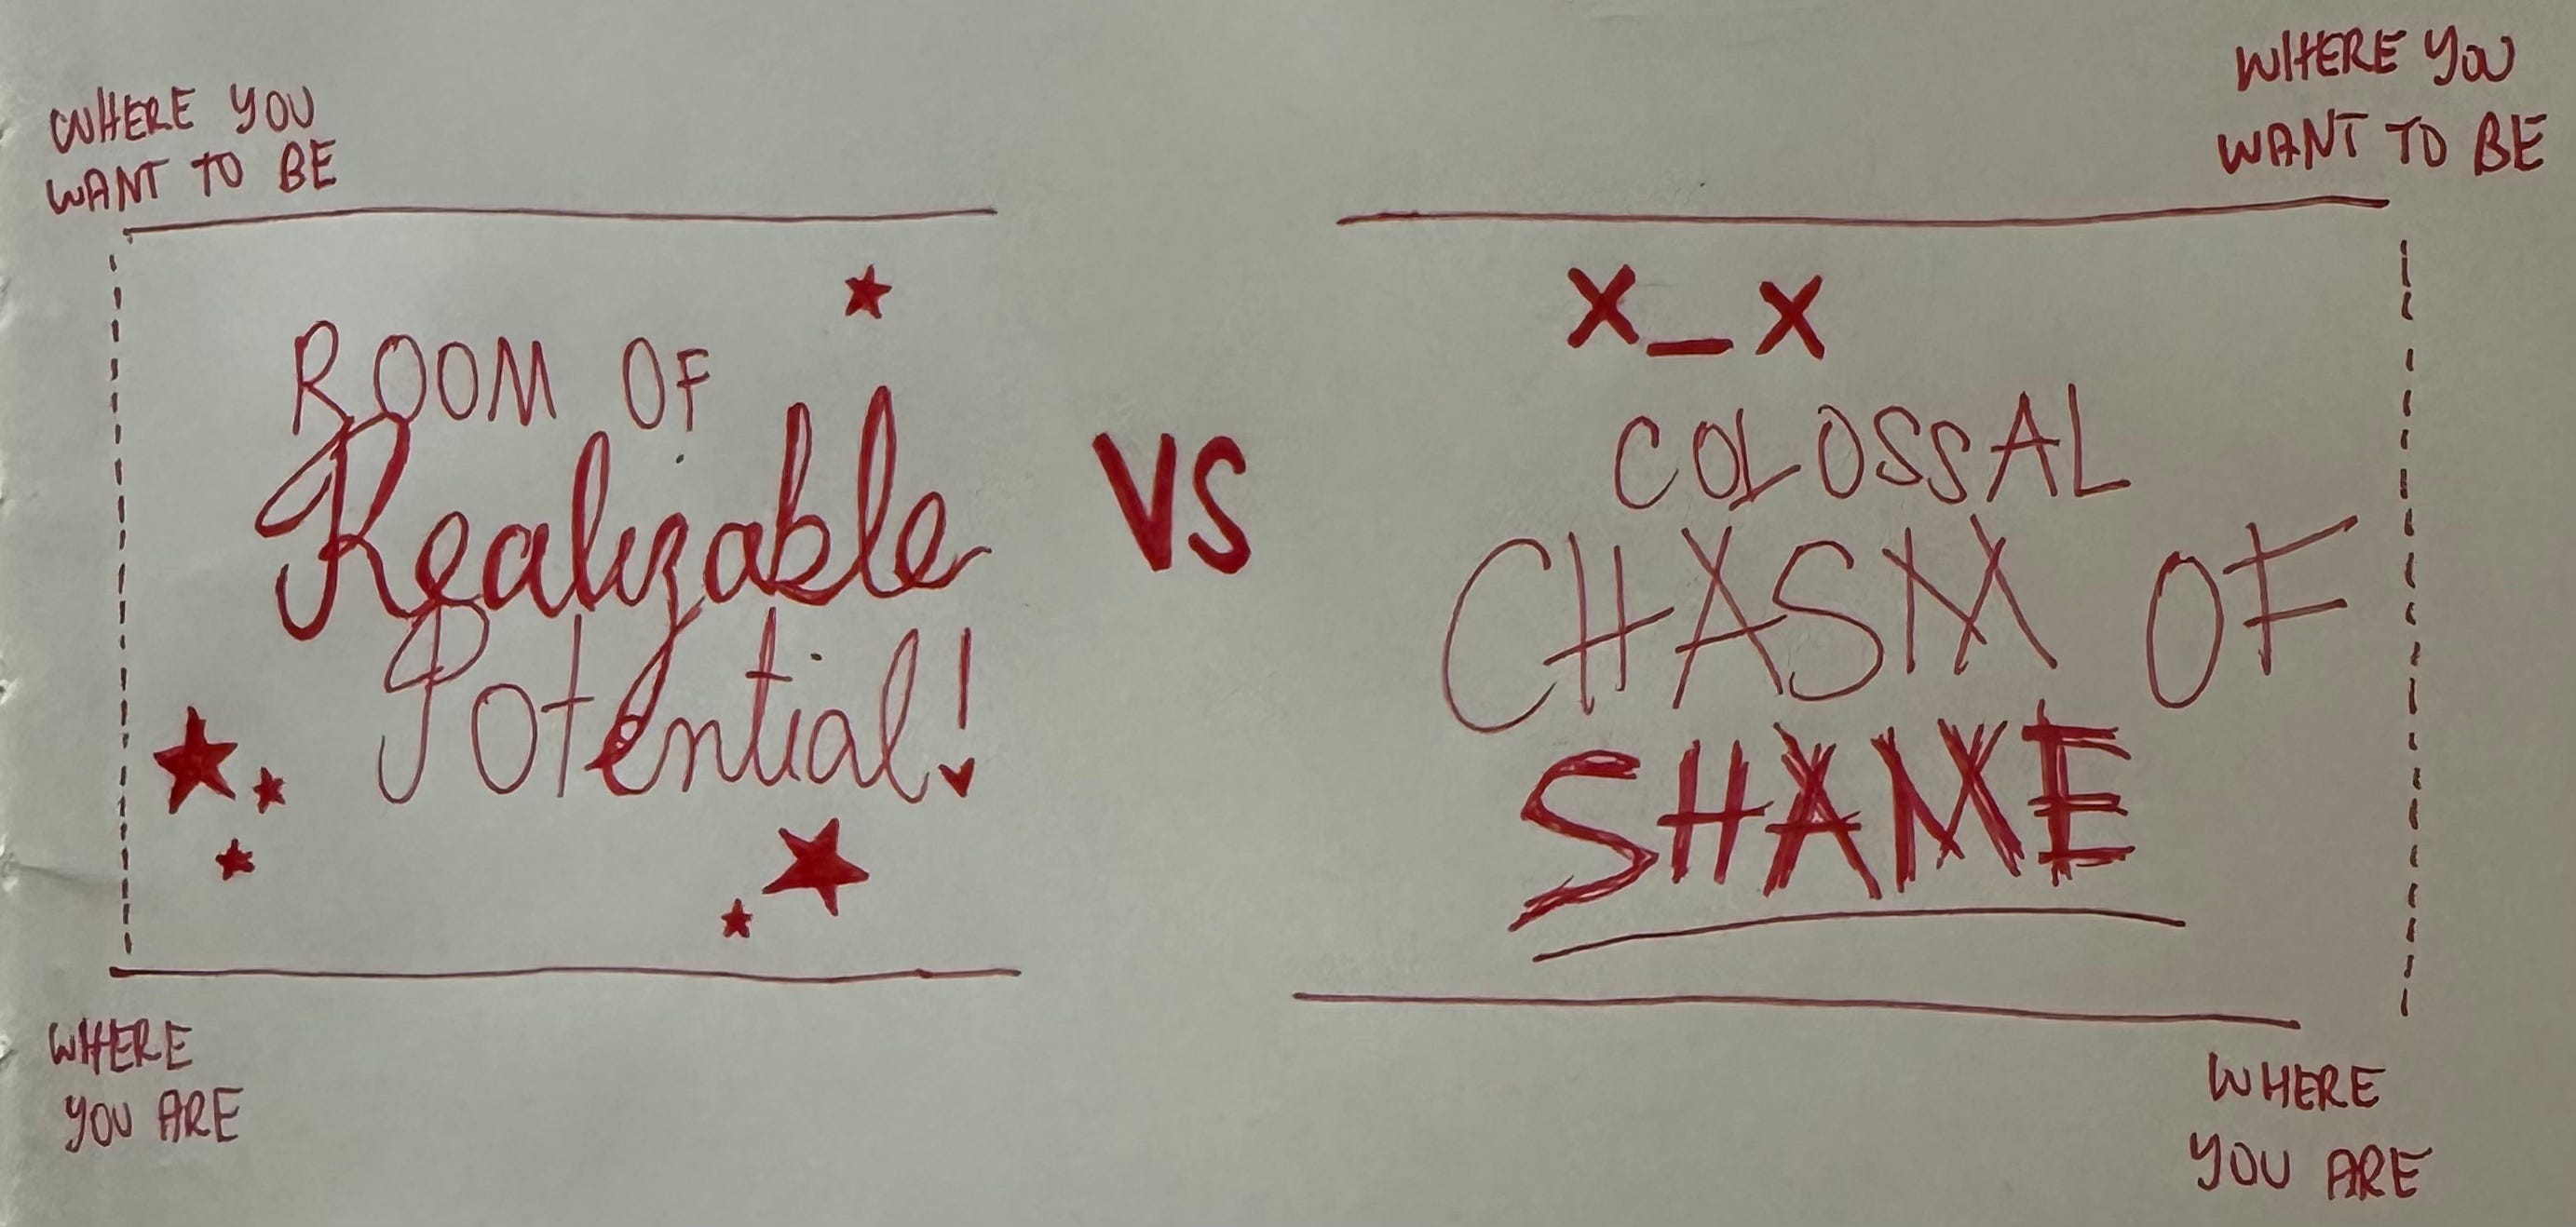 WHERE YOU
WANT TO BE
ROOM OF
Realizable
Potential!
WHERE
YOU ARE
VS
WHERE YOU
WANT TO BE
X_X
COLOSSAL
CHASM OF
SHAME
WHERE
YOU ARE